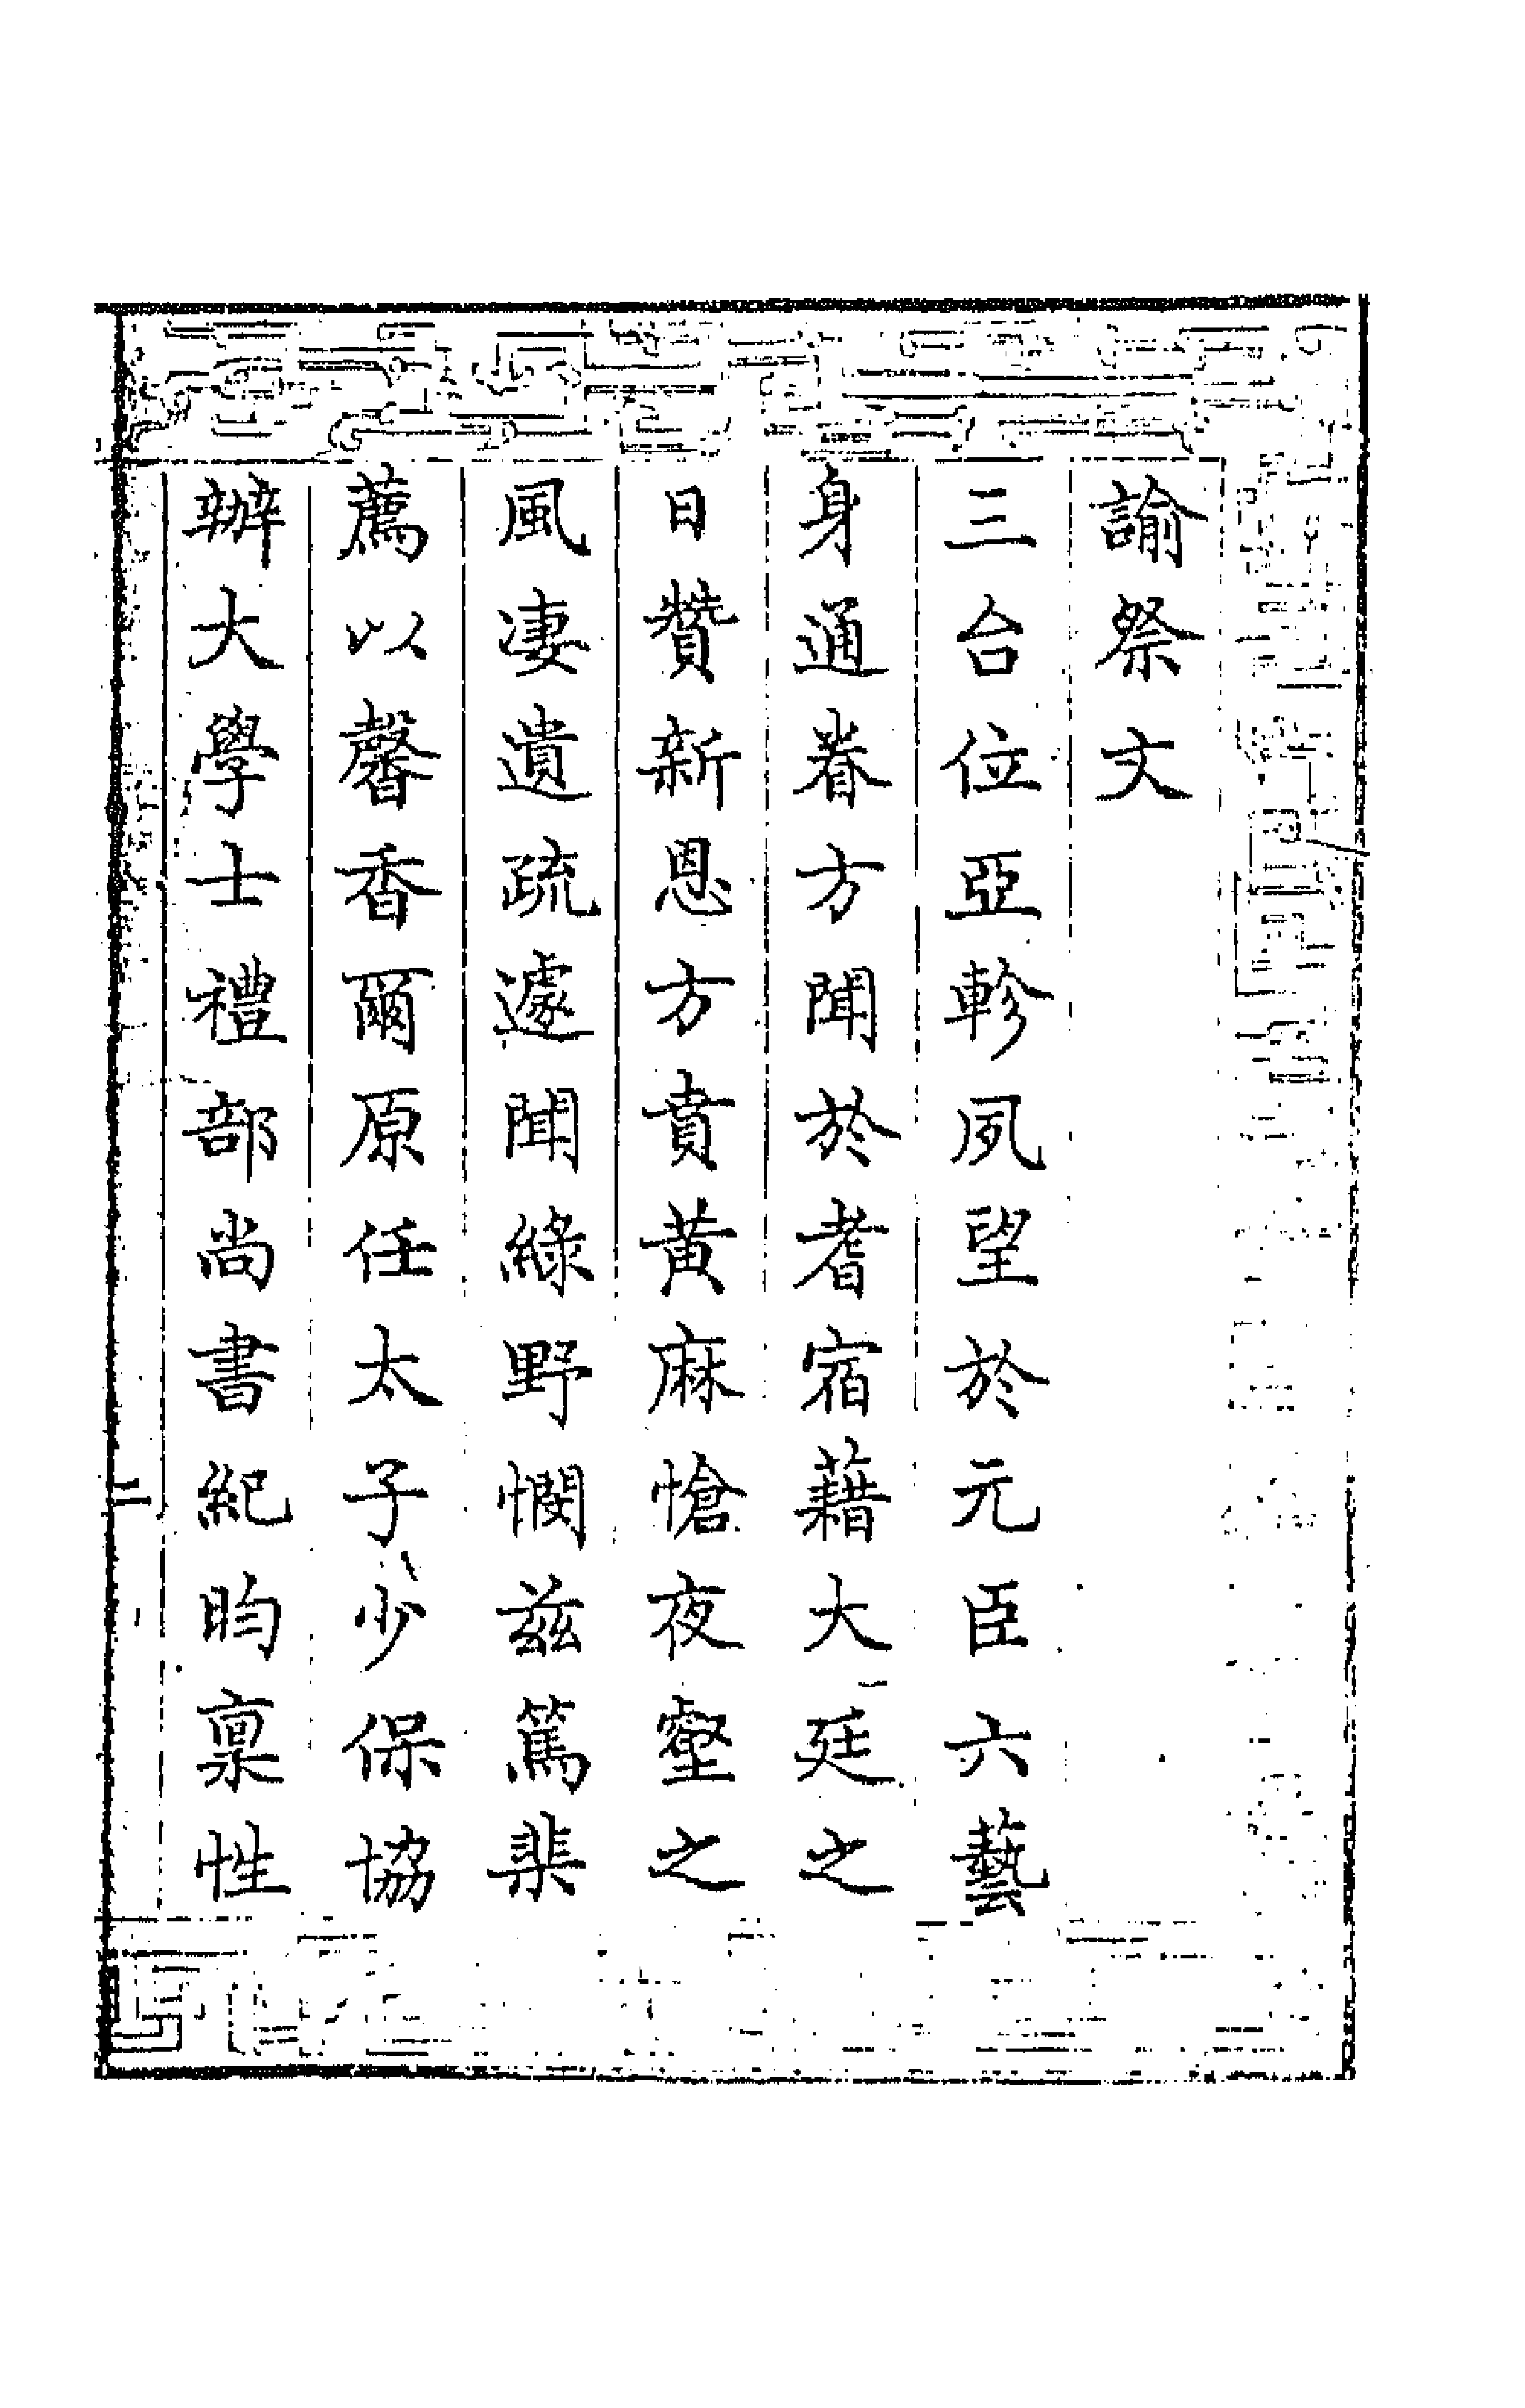 諭祭文
三台位亞軫夙望於元臣六藝
身通眷方聞於耆宿藉大廷之
日贊新恩方賁黃麻愴夜壑之
風淒遺疏遽聞綠野憫茲篤棐
薦以馨香爾原任太子少保協
辦大學士禮部尚書紀昀稟性
二